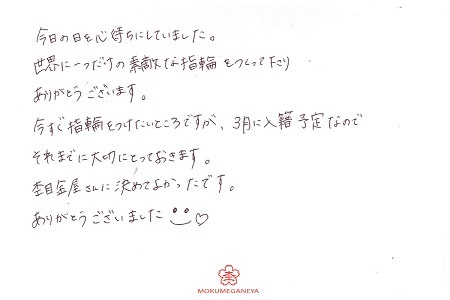 今日の日を心待ちにしていました。
世界に一つだけの素敵な指輪をつくって下さり
ありがとうございます。
今すぐ指輪をつけたいところですが、3月に入籍予定なので
それまで大切にとっておきます。
杢目金屋さんに決めてよかったです。
ありがとうございました
MOKUMEGANEYA